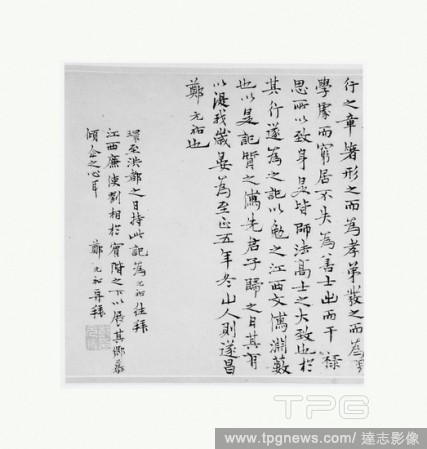 行之章著形之而為孝弟發之而為
學處而窮居不失為善士出而干祿
思所以致身是皆師法高士之大致也於
其行遂為之記以勉之江西文儒淵藪
也以是記贄之儒先君子歸之日其有
以淑我歲晏焉至正五年冬山人則遂昌
鄭元祐也
環至洪都之日持此記為元祐往拜
江西廉使劉相於賓階之下以展其鄉慕
傾企之心耳 鄭元祐再拜
TPG
www.tpgnews.com/達志影像